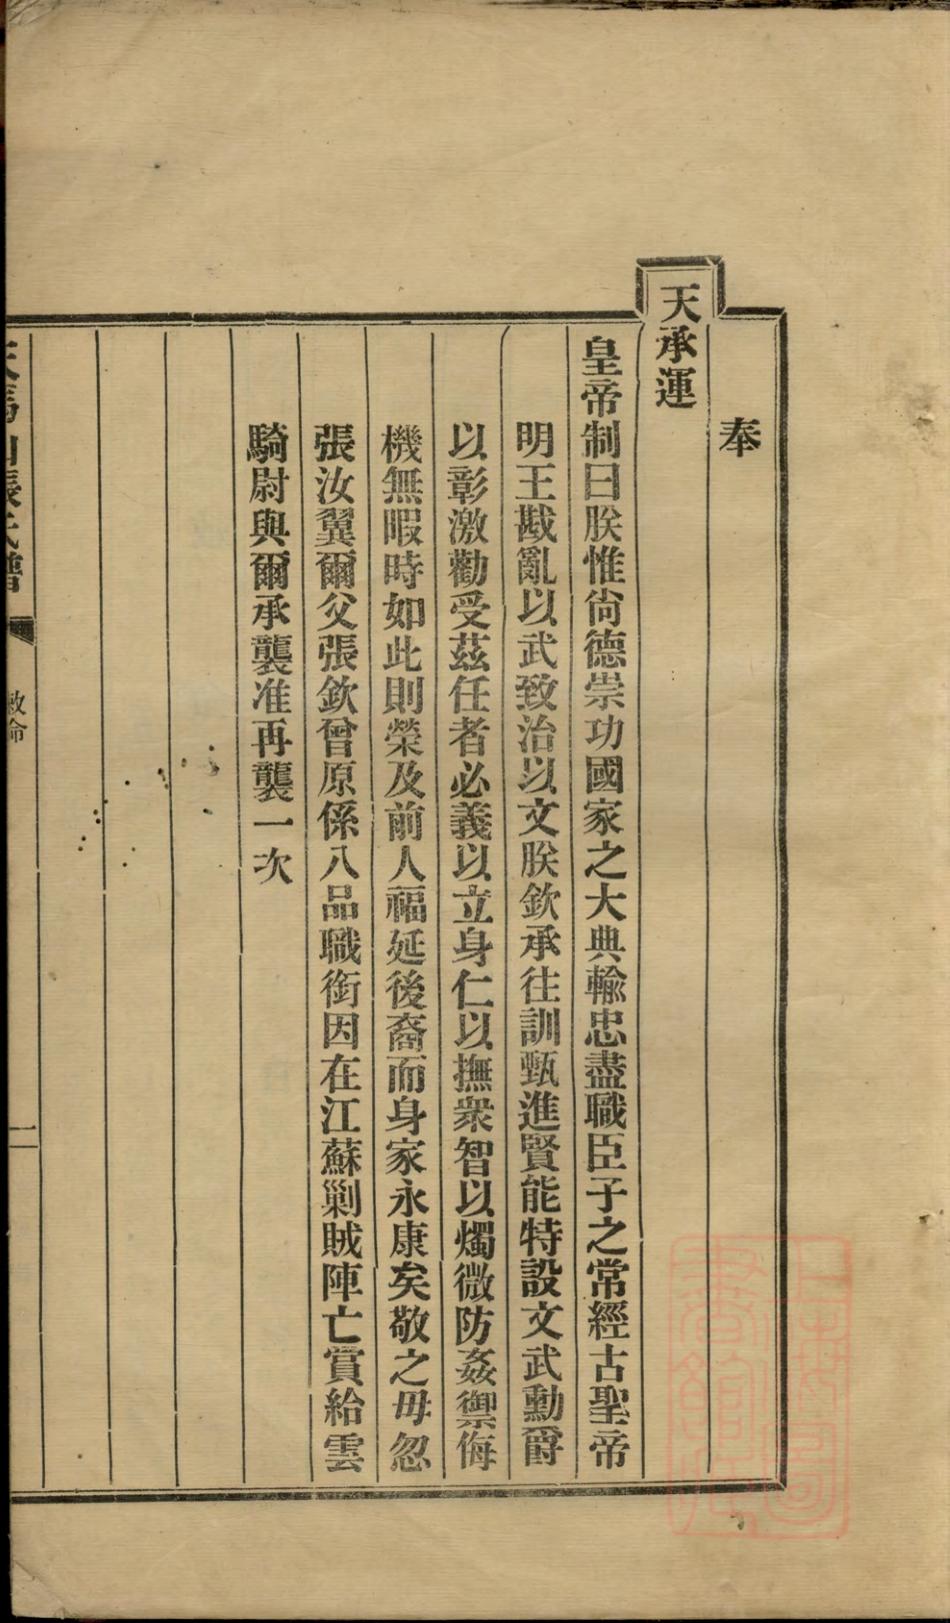 奉
天承運
皇帝制曰朕惟尙德崇功國家之大典輸忠盡職臣子之常經古聖帝
明王戡亂以武致治以文朕欽承往訓甄進賢能特設文武勳爵
以彰激勸受茲任者必義以立身仁以撫衆智以燭微防姦禦侮
機無暇時如此則榮及前人福延後裔而身家永康矣敬之毋忽
張汝翼爾父張欽曾原係八品職銜因在江蘇剿賊陣亡賞給雲
騎尉與爾承襲准再襲一次
天馬山張氏譜
敕命
一